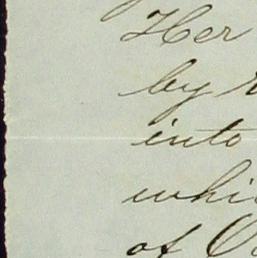 Her
by
into
whi
of